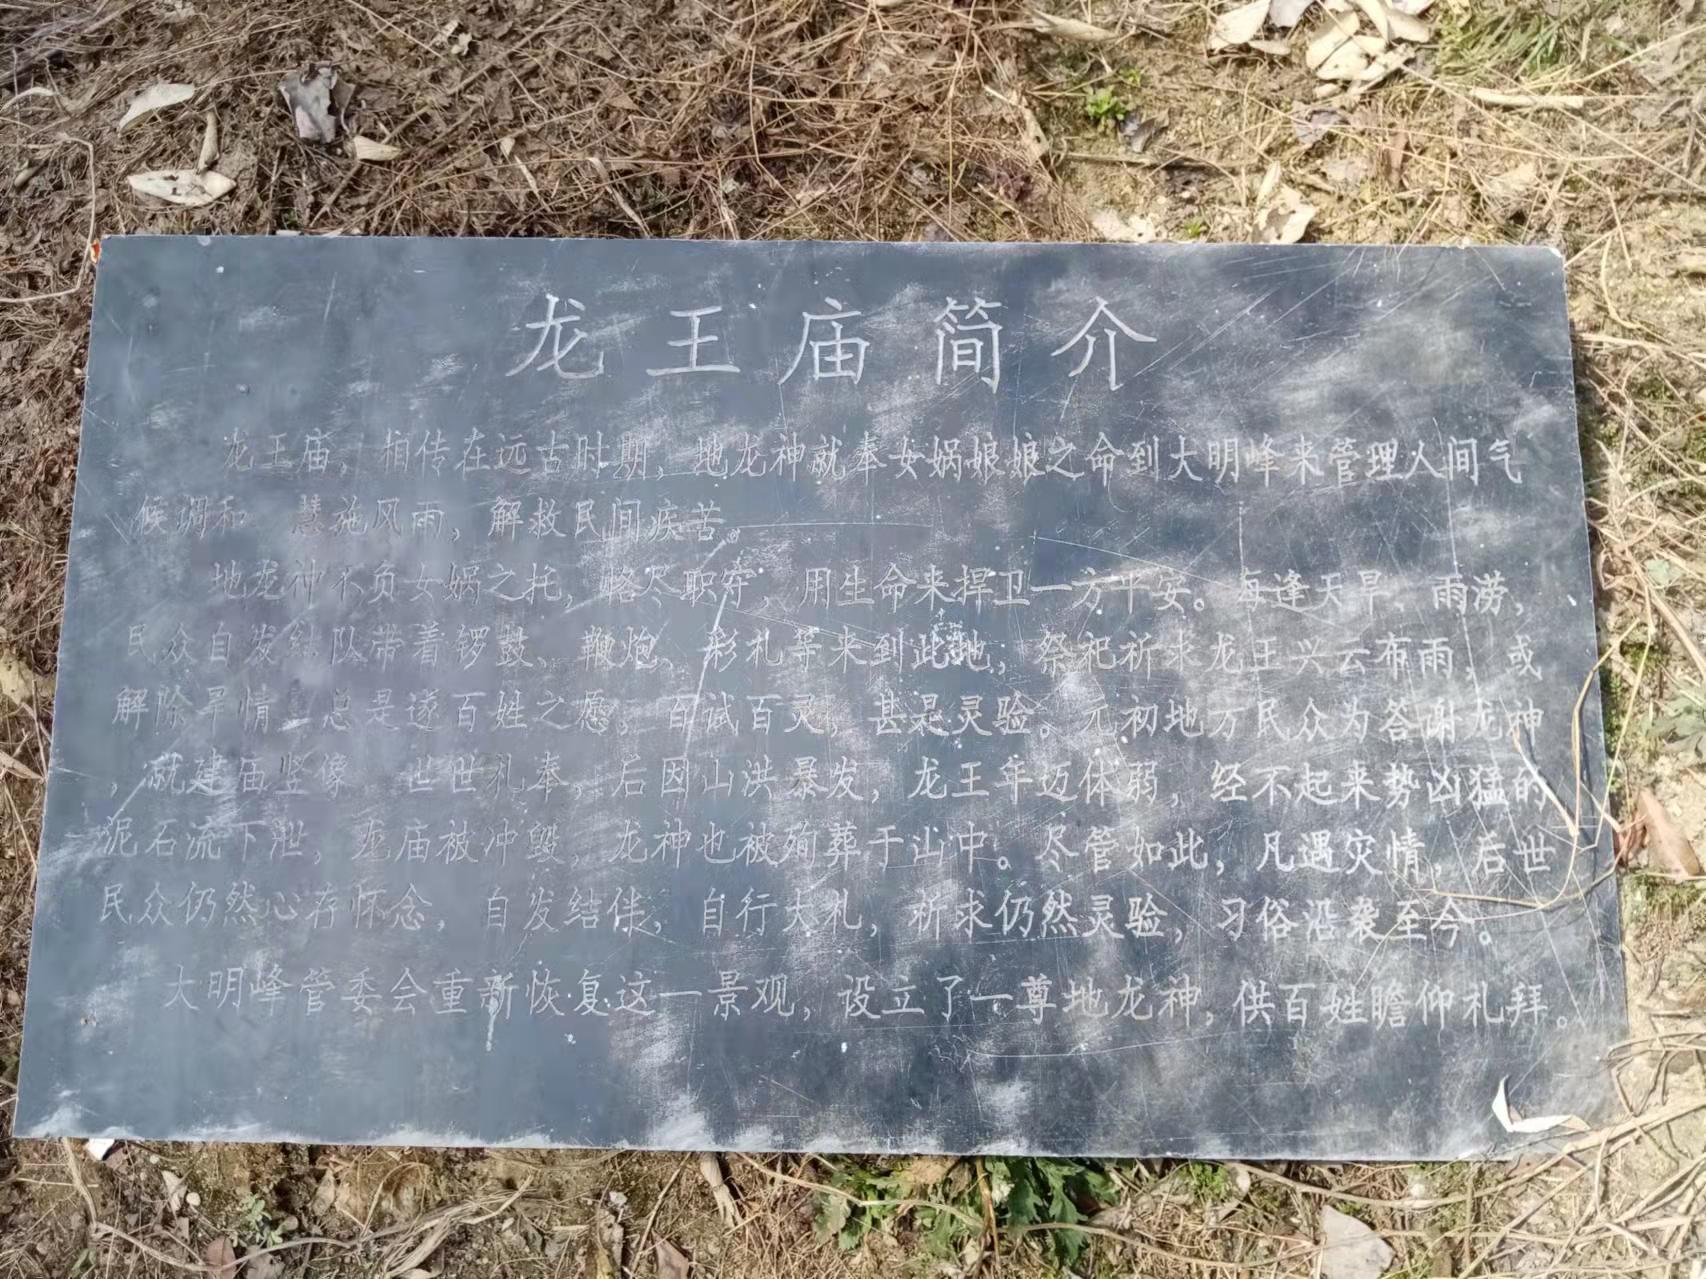 龙王庙简介
龙王庙，相传在远古时期，地龙神就奉女娲娘娘之命到大明峰来管理人间气
候调和 慧施风雨，解救民间疾苦。
地龙神不负女娲之托，恪尽职守，用生命来捍卫一方平安。每逢天旱、雨涝，
民众自发结队带着锣鼓、鞭炮、彩札等来到此地，祭祀祈求龙王兴云布雨，或
解除旱情。总是遂百姓之愿，百试百灵，甚是灵验。元初地方民众为答谢龙神
，就建庙竖像 世世礼奉，后因山洪暴发，龙王年迈体弱，经不起来势凶猛的
泥石流下泄，龙庙被冲毁，龙神也被殉葬于山中。尽管如此，凡遇灾情，后世
民众仍然心存怀念，自发结伴，自行大礼，祈求仍然灵验，习俗沿袭至今。
大明峰管委会重新恢复这一景观，设立了一尊地龙神，供百姓瞻仰礼拜。